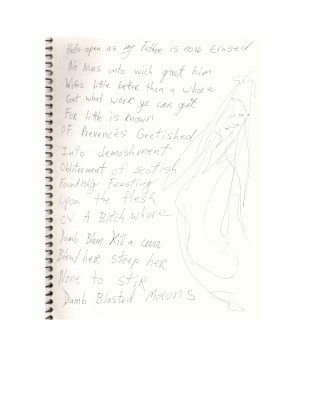 Hells open as my Father is now Erased
No Nuns unto wich great him
Witns little better than a whore
Get what work ye can get
For litle is known
OF Prevences Geetished
Into demoshment
Obliterment of scottish
Foundlishly Feasting
upon the flesh
OV A Bitch whore
Damb Blam Kill a
Blend her steep her
None to stir
Damb Blasted Moruns